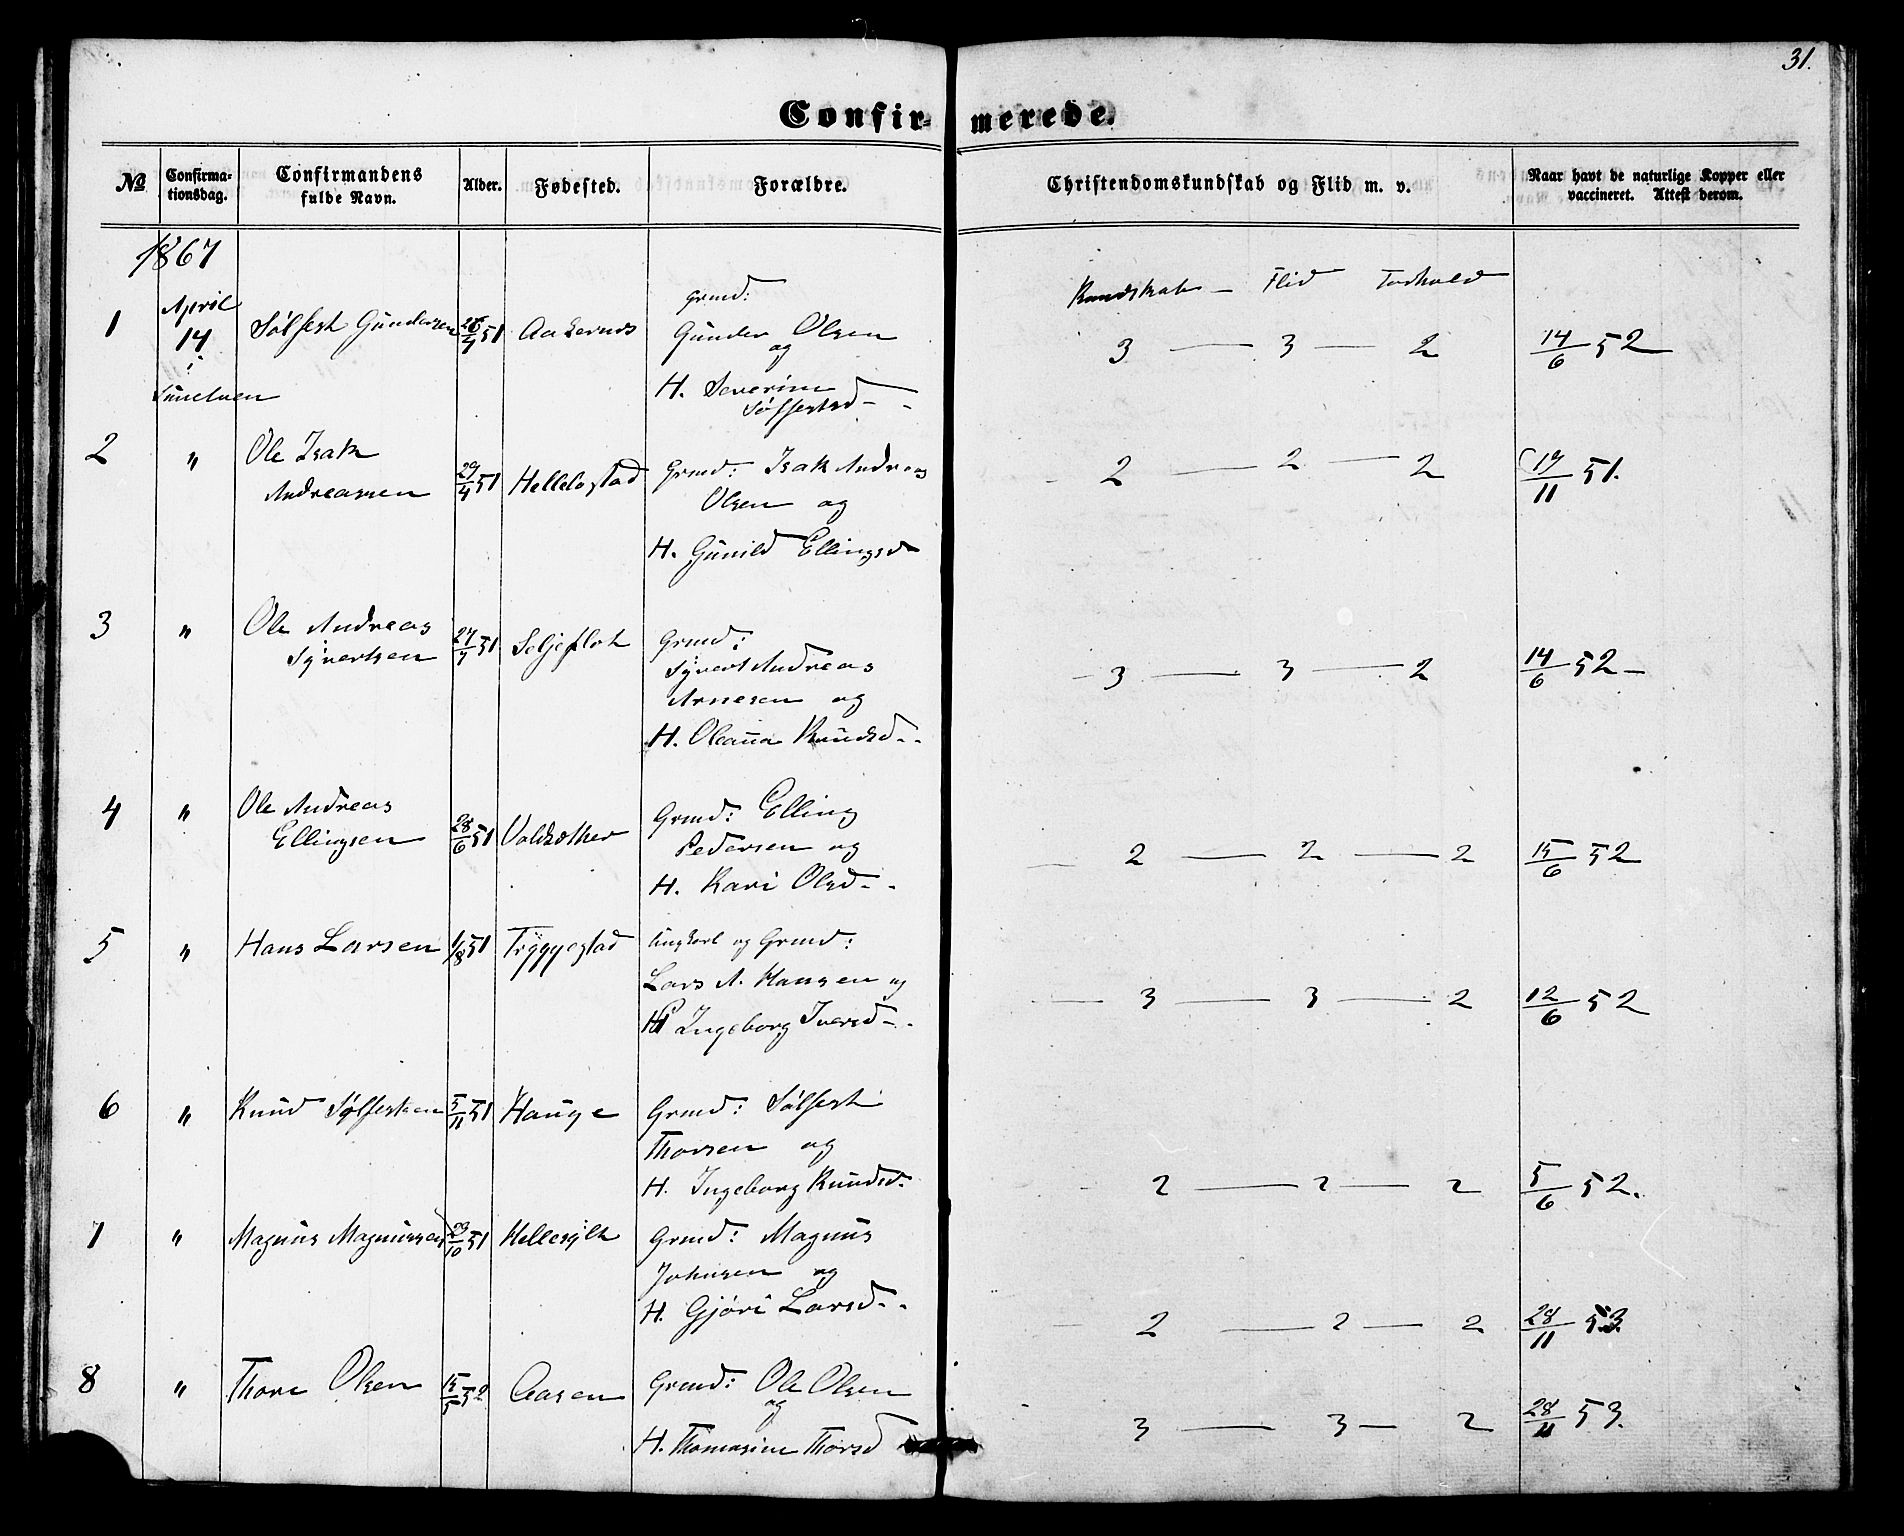 31.
Confir- merede.
No
Confirma-
tionsdag.
Confirmandens
fulde Navn.
Alder.
Fødested.
Forældre.
Christendomskundskab og Flid m. v.
Naar havt de naturlige Kopper eller
vaccineret. Attest derom.
1867
Kundskab – Flid Forhold
1 April 14 i Sunelven
Sølfest Gundersen 51 Aakernes
Grmd:
Gunder Olsen
og
H. Severine
Sølfestsd - -
3 — 3 — 2 14/6 52
2 " Ole Isak
Andreassen 29/4 51 Hellebostad
Grmd: Isak Andreas
Olsen og
H. Gunild Ellingsd
2 — 2 — 2 19/11 51.
3 " Ole Andreas
Syvertsen 27/7 51 Seljeflot
Grmd:
Syvert Andreas
Arnesen og
H. Oleana Knudsd - -
3 — 3 — 2 14/6 52 -
4 " Ole Andreas
Ellingsen 28/6 51 Voldsæther
Grmd: Elling
Pedersen og
H. Kari Olsd - -
2 — 2 — 2 15/6 52
5 " Hans Larsen 1/8 51 Tryggestad
Ungkarl og Grmd:
Lars A. Hansen og
P Ingeborg Iversd - -
3 — 3 — 2 12/6 52
6 " Knud Sølfestsen 5/11 51 Hauge
Grmd: Sølfest
Thorsen og
H. Ingeborg Knudsd.
2 — 2 — 2 5/6 52.
7 " Magnus Magnussen 29/10 51 Hellesylt
Grmd: Magnus
Johnsen og
H. Gjøri Larsd - -
2 — 2 — 2 28/11 53.
8 " Thore Olsen 15/5 52 Aasen
Grmd: Ole Olsen
og
H. Thomasine Thorsd
3 — 3 — 2 28/11 53.